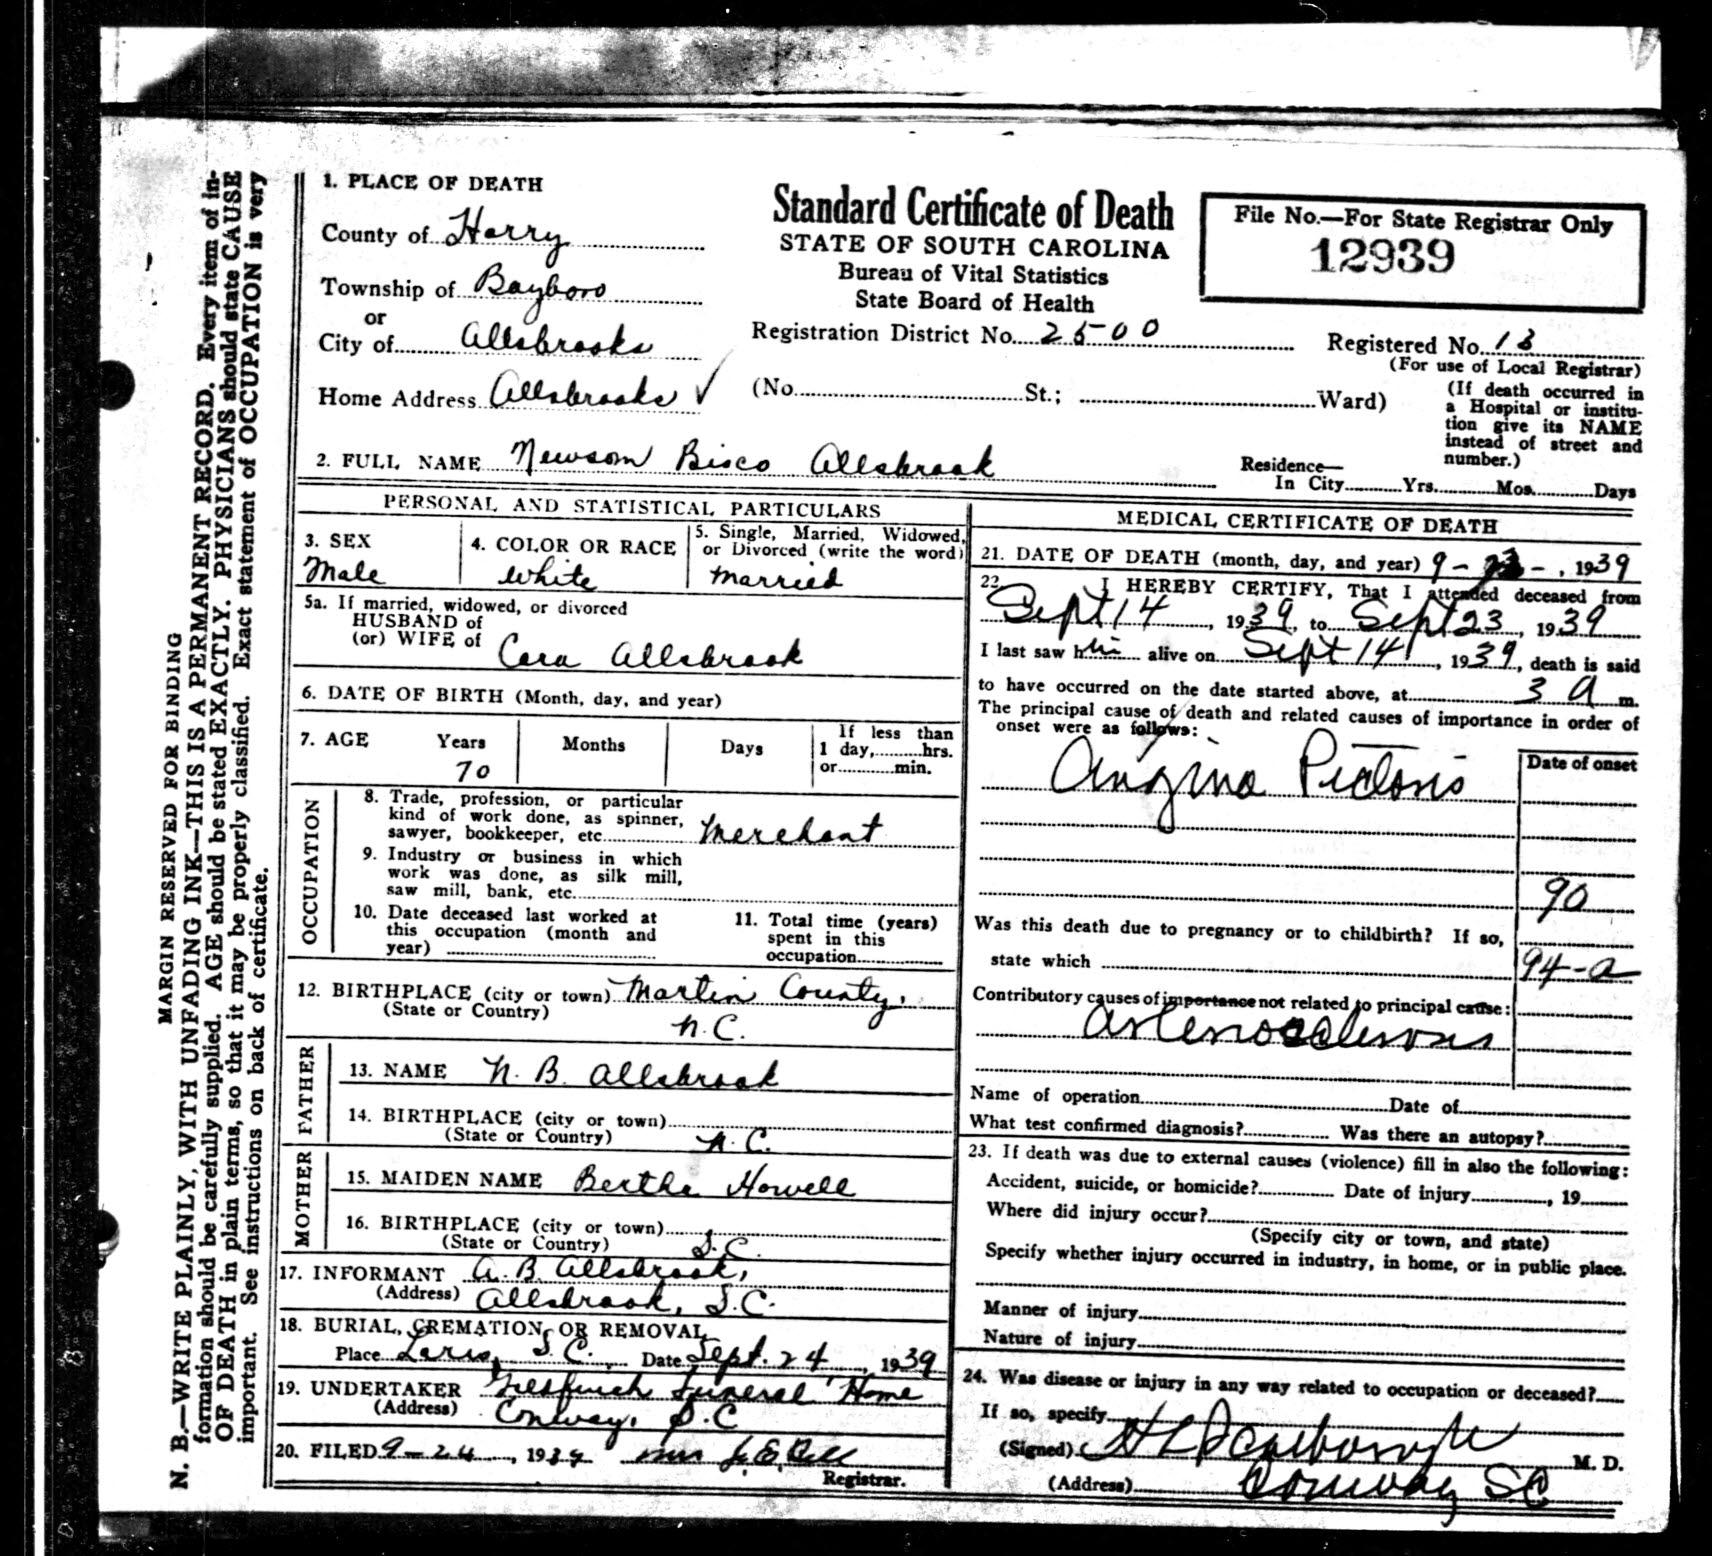 MARGIN RESERVED FOR BINDING
N. B.—WRITE PLAINLY, WITH UNFADING INK—THIS IS A PERMANENT RECORD. Every item of in-
formation should be carefully supplied. AGE should be stated EXACTLY. PHYSICIANS should state CAUSE
OF DEATH in plain terms, so that it may be properly classified. Exact statement of OCCUPATION is very
important. See instructions on back of certificate.
1. PLACE OF DEATH
County of Horry
Township of Bayboro
or
City of Allsbrooks
Home Address Allsbrooks ✓
Standard Certificate of Death
STATE OF SOUTH CAROLINA
Bureau of Vital Statistics
State Board of Health
Registration District No. 2500
(No. St.; Ward)
File No.—For State Registrar Only
12939
Registered No. 13
(For use of Local Registrar)
(If death occurred in
a Hospital or institu-
tion give its NAME
instead of street and
number.)
2. FULL NAME Newsom Bisco Allsbrook
Residence—
In City Yrs. Mos. Days
PERSONAL AND STATISTICAL PARTICULARS
3. SEX
Male
4. COLOR OR RACE
White
5. Single, Married, Widowed,
or Divorced (write the word)
Married
5a. If married, widowed, or divorced
HUSBAND of
(or) WIFE of Cora Allsbrook
6. DATE OF BIRTH (Month, day, and year)
7. AGE Years Months Days
70
If less than
1 day, hrs.
or min.
OCCUPATION
8. Trade, profession, or particular
kind of work done, as spinner,
sawyer, bookkeeper, etc. Merchant
9. Industry or business in which
work was done, as silk mill,
saw mill, bank, etc.
10. Date deceased last worked at
this occupation (month and
year)
11. Total time (years)
spent in this
occupation
12. BIRTHPLACE (city or town) Martin County,
(State or Country) N.C.
FATHER
13. NAME N. B. Allsbrook
14. BIRTHPLACE (city or town)
(State or Country) N.C.
MOTHER
15. MAIDEN NAME Bertha Howell
16. BIRTHPLACE (city or town)
(State or Country) S.C.
17. INFORMANT A. B. Allsbrook,
(Address) Allsbrook, S.C.
18. BURIAL, CREMATION, OR REMOVAL
Place Loris, S.C. Date Sept. 24, 1939
19. UNDERTAKER Funeral Home
(Address) Conway, S.C
20. FILED 9-24, 1939 Mrs J. E. Bell
Registrar.
MEDICAL CERTIFICATE OF DEATH
21. DATE OF DEATH (month, day, and year) 9-23-, 1939
22. I HEREBY CERTIFY, That I attended deceased from
Sept 14, 1939, to Sept 23, 1939
I last saw him alive on Sept 14, 1939, death is said
to have occurred on the date started above, at 3 A m.
The principal cause of death and related causes of importance in order of
onset were as follows:
Date of onset
Angina Pictoris
90
Was this death due to pregnancy or to childbirth? If so,
state which
94-a
Contributory causes of importance not related to principal cause:
Arteriosclerosis
Name of operation Date of
What test confirmed diagnosis? Was there an autopsy?
23. If death was due to external causes (violence) fill in also the following:
Accident, suicide, or homicide? Date of injury, 19
Where did injury occur?
(Specify city or town, and state)
Specify whether injury occurred in industry, in home, or in public place.
Manner of injury
Nature of injury
24. Was disease or injury in any way related to occupation or deceased?
If so, specify
(Signed) H L Scarborough M. D.
(Address) Conway SC